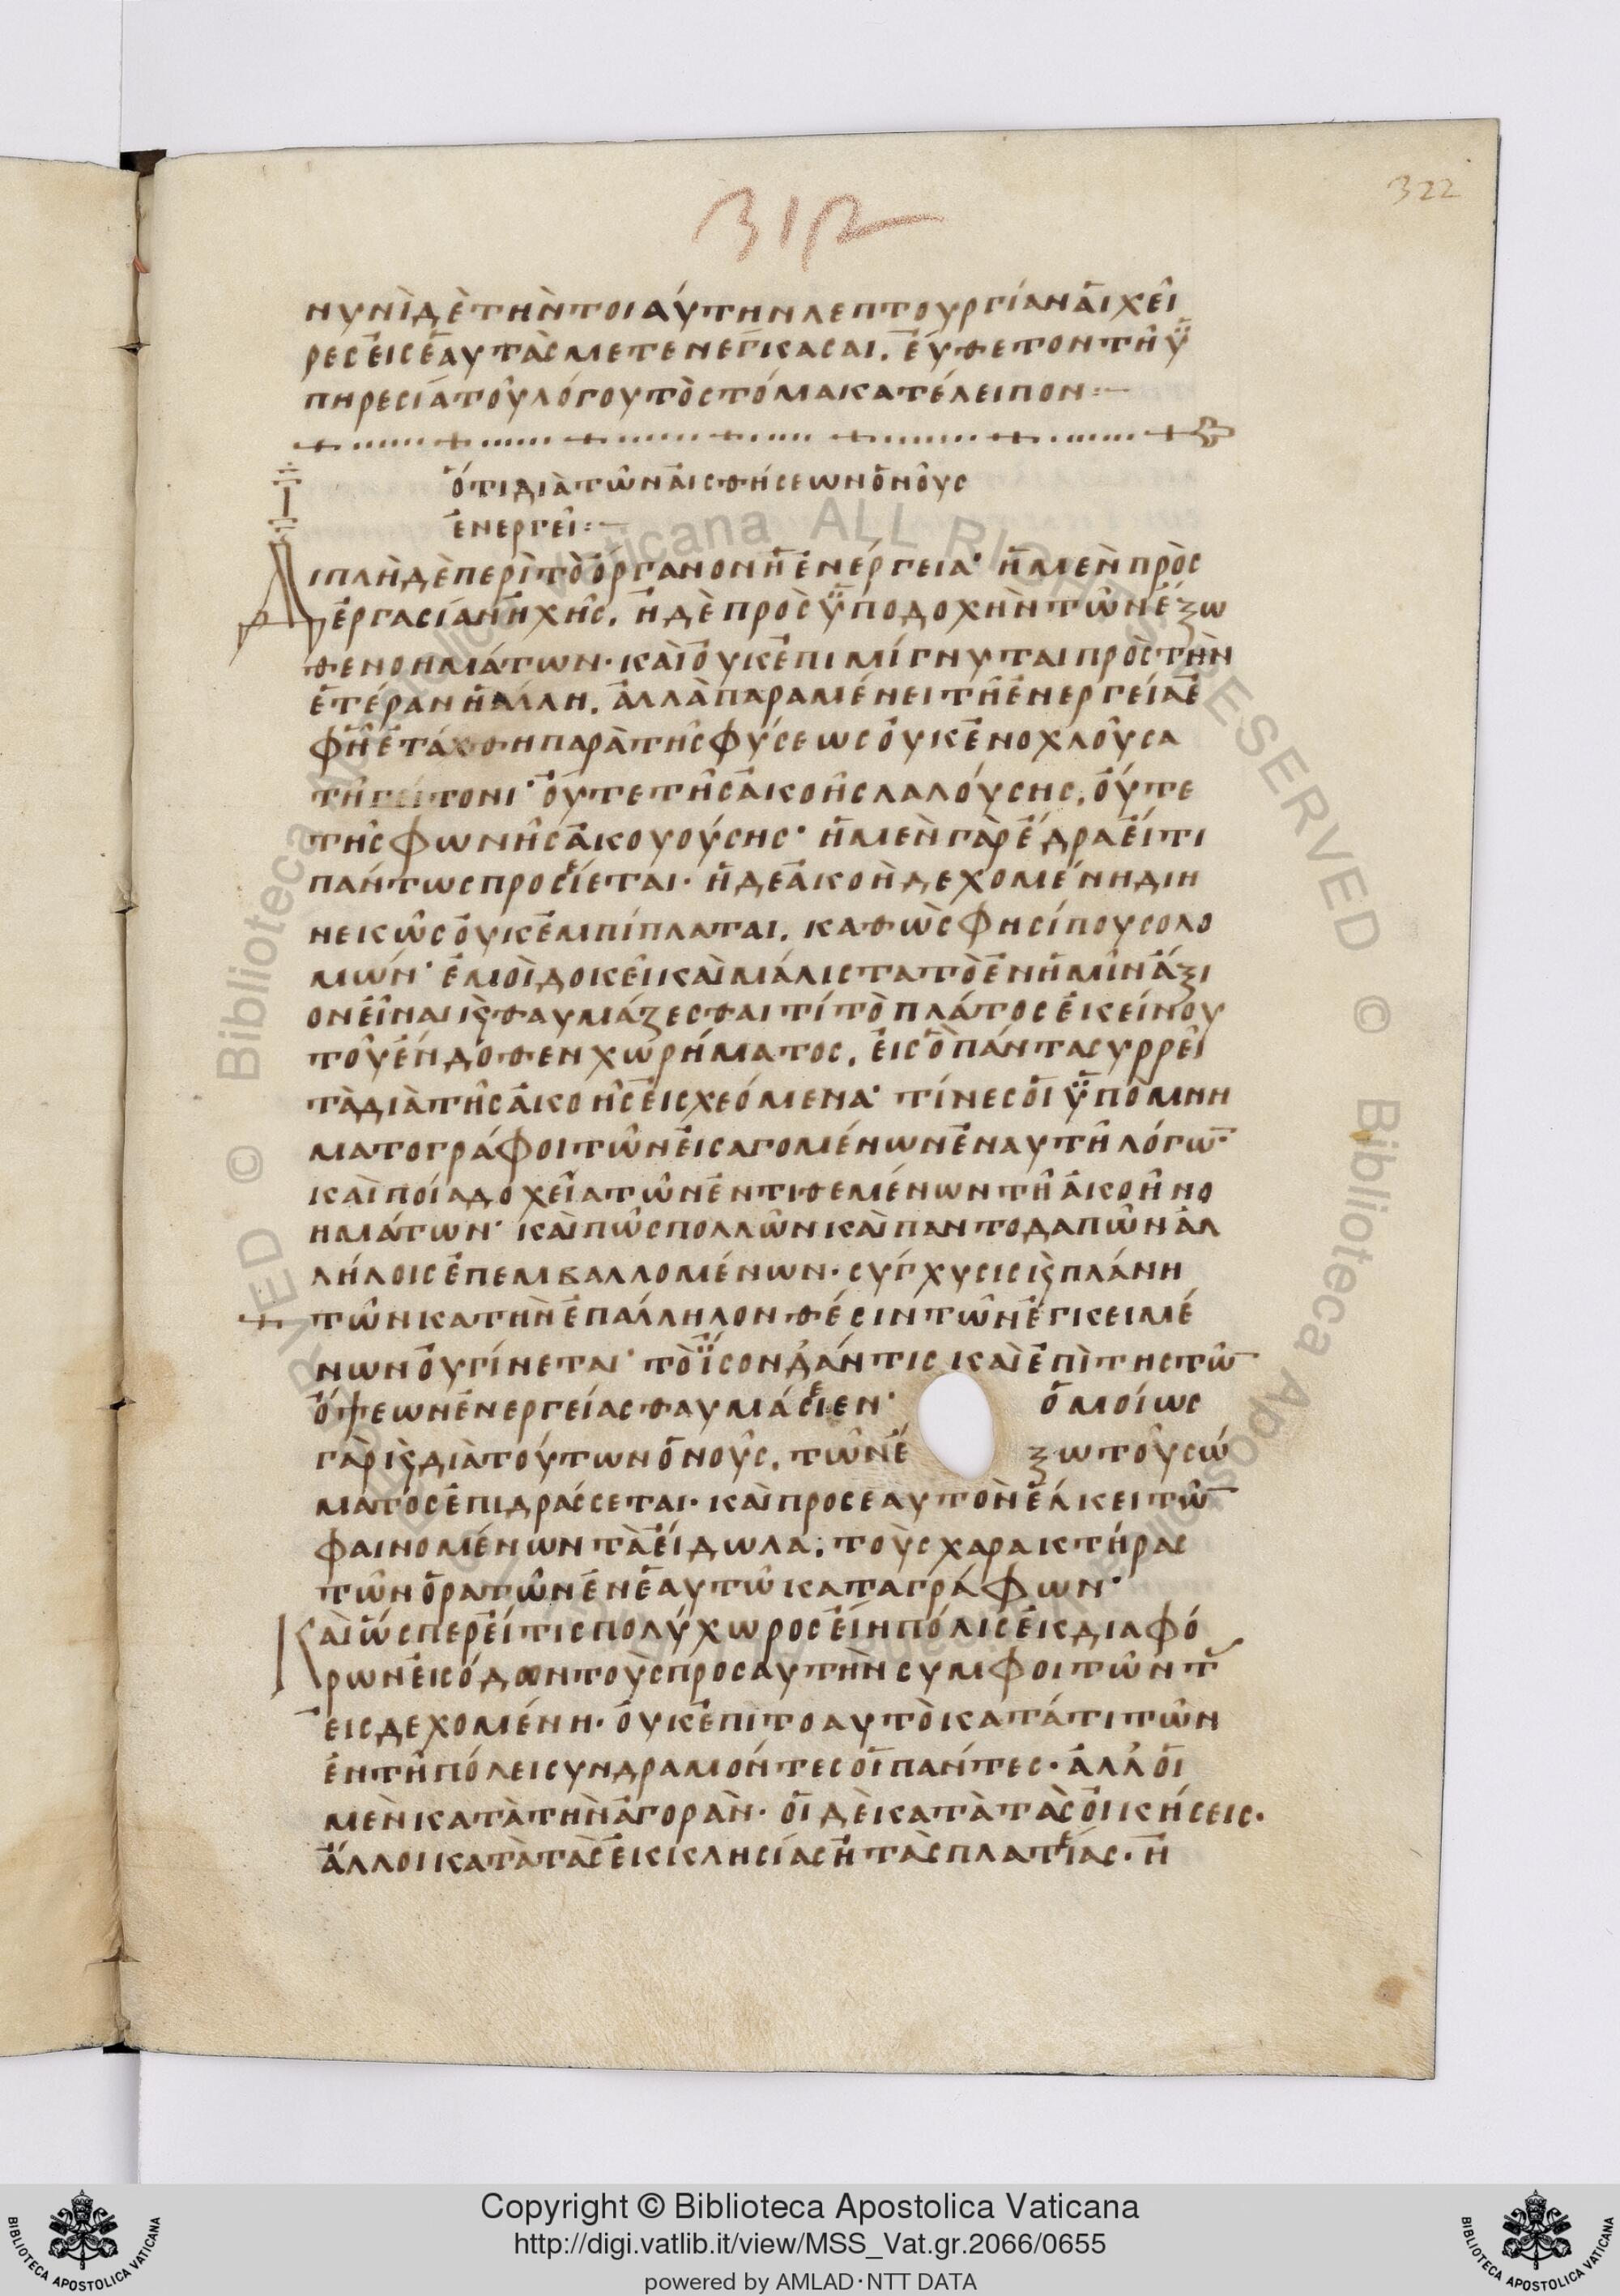 312
322
νυνὶ δὲ τὴν τοιαύτην λεπτουργίαν ἁι χεῖ
ρες εἰς ἑαυτὰς μετενεγκασαι, ἔυθετον τῆ ϋ
πηρεσία τοῦ λόγου τὸ στόμα κατέλειπον:—
Ι ὅτι διὰ τῶν ἀισθήσεων ὁ νοῦς
ἐνεργεῖ:—
Διπλὴ δὲ περὶ τὸ ὄργανον ἡ ἐνέργεια· ἡ μὲν πρὸς
ἐργασίαν ἠχῆς, ἡ δὲ πρὸς ϋποδοχὴν τῶν ἔξω
θεν οημάτων· καὶ οὐκ ἐπιμίγνυται πρὸς τὴν
ἑτέραν ἡ ἄλλη, ἀλλὰ παραμένει τῆ ἐνεργεία ἐ
φ ἧ ἐτάχθη παρὰ τῆς φύσεως οὐκ ἐνοχλοῦσα
τῆ γείτονι· οὔτε τῆς ἀκοῆς λαλούσης, οὔτε
τῆς φωνῆς ἀκουούσης· ἡ μὲν γὰρ ἕδρα ἐί τι
πάντως προσείεται· ἡ δε ἀκοὴ δεχομένη διη
νεκῶς οὐκ ἐμπίπλαται, καθὼς φησί που σολο
μών· ἐμοὶ δοκεῖ καὶ μάλιστα τὸ ἐν ἡμῖν ἄξι
ον εἶναι ϗ θαυμάζεσθαι τί τὸ πλάτος ἐκείνου
τοῦ ἔνδοθεν χωρήματος, ἐις ὃ πάντα συρρεῖ
τὰ διὰ τῆς ἀκοῆς ἐισχεόμενα· τίνες ὁι ϋπομνη
ματογράφοι τῶν ἐισαγομένων ἐν αυτῆ λόγω̅·
καὶ ποία δοχεῖα τῶν ἐντιθεμένων τῆ ἀκοῆ νο
ημάτων· καὶ πῶς πολλῶν καὶ παντοδαπῶν ἀλ
λήλοις ἐπεμβαλλομένων· σύγχυσις ϗ πλάνη
τῶν κατὴν ἐπάλληλον θέσιν τῶν ἐγκειμέ
νων οὐ γίνεται· τὸ ϊσον δ' ἄν τις καὶ ἐπὶ της τῶ̅
ὄψεων ἐνεργείας θαυμάσειεν· ὁμοίως
γὰρ ϗ διὰ τούτων ὁ νοῦς, τῶν ἔξω τοῦ σώ
ματος ἐπιδράσσεται· καὶ προς ἑαυτὸν ἕλκει τῶ̅
φαινομένων τὰ ἐίδωλα, τοὺς χαρακτήρας
τῶν ὁρατῶν ἐν ἑαυτῶ καταγράφων·
Καὶ ὥσπερ ἐί τις πολύχωρος ἐίη πόλις ἐκ διαφό
ρων ἐισόδων τοὺς προς αυτὴν συμφοιτῶντ̅
ἐισδεχομένη· οὐκ ἐπὶ το αυτὸ κατά τι τῶν
ἐν τῆ πόλει συνδραμόντες ὁι πάντες· ἀλλ' ὁι
μὲν κατὰ τὴν ἀγορὰν· ὁι δὲ κατὰ τὰς ὀικήσεις·
ἄλλοι κατὰ τὰς ἐκκλησίας ἢ τὰς πλατείας· ἢ
Copyright © Biblioteca Apostolica Vaticana
http://digi.vatlib.it/view/MSS_Vat.gr.2066/0655
powered by AMLAD·NTT DATA
BIBLIOTECA APOSTOLICA VATICANA
BIBLIOTECA APOSTOLICA VATICANA